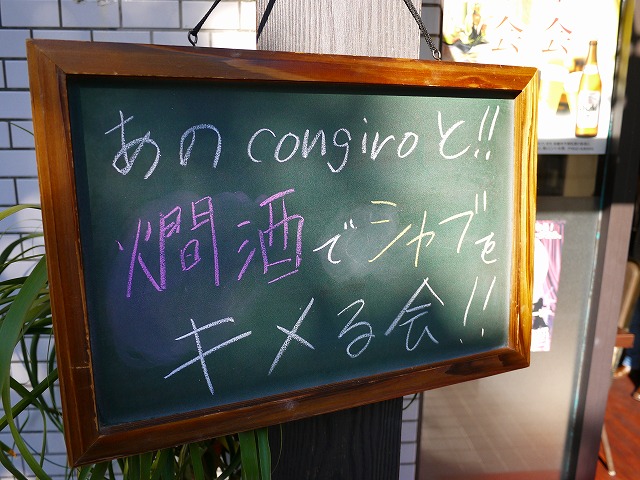 あのcongiroと!!
燗酒でシャブを
キメる会!!